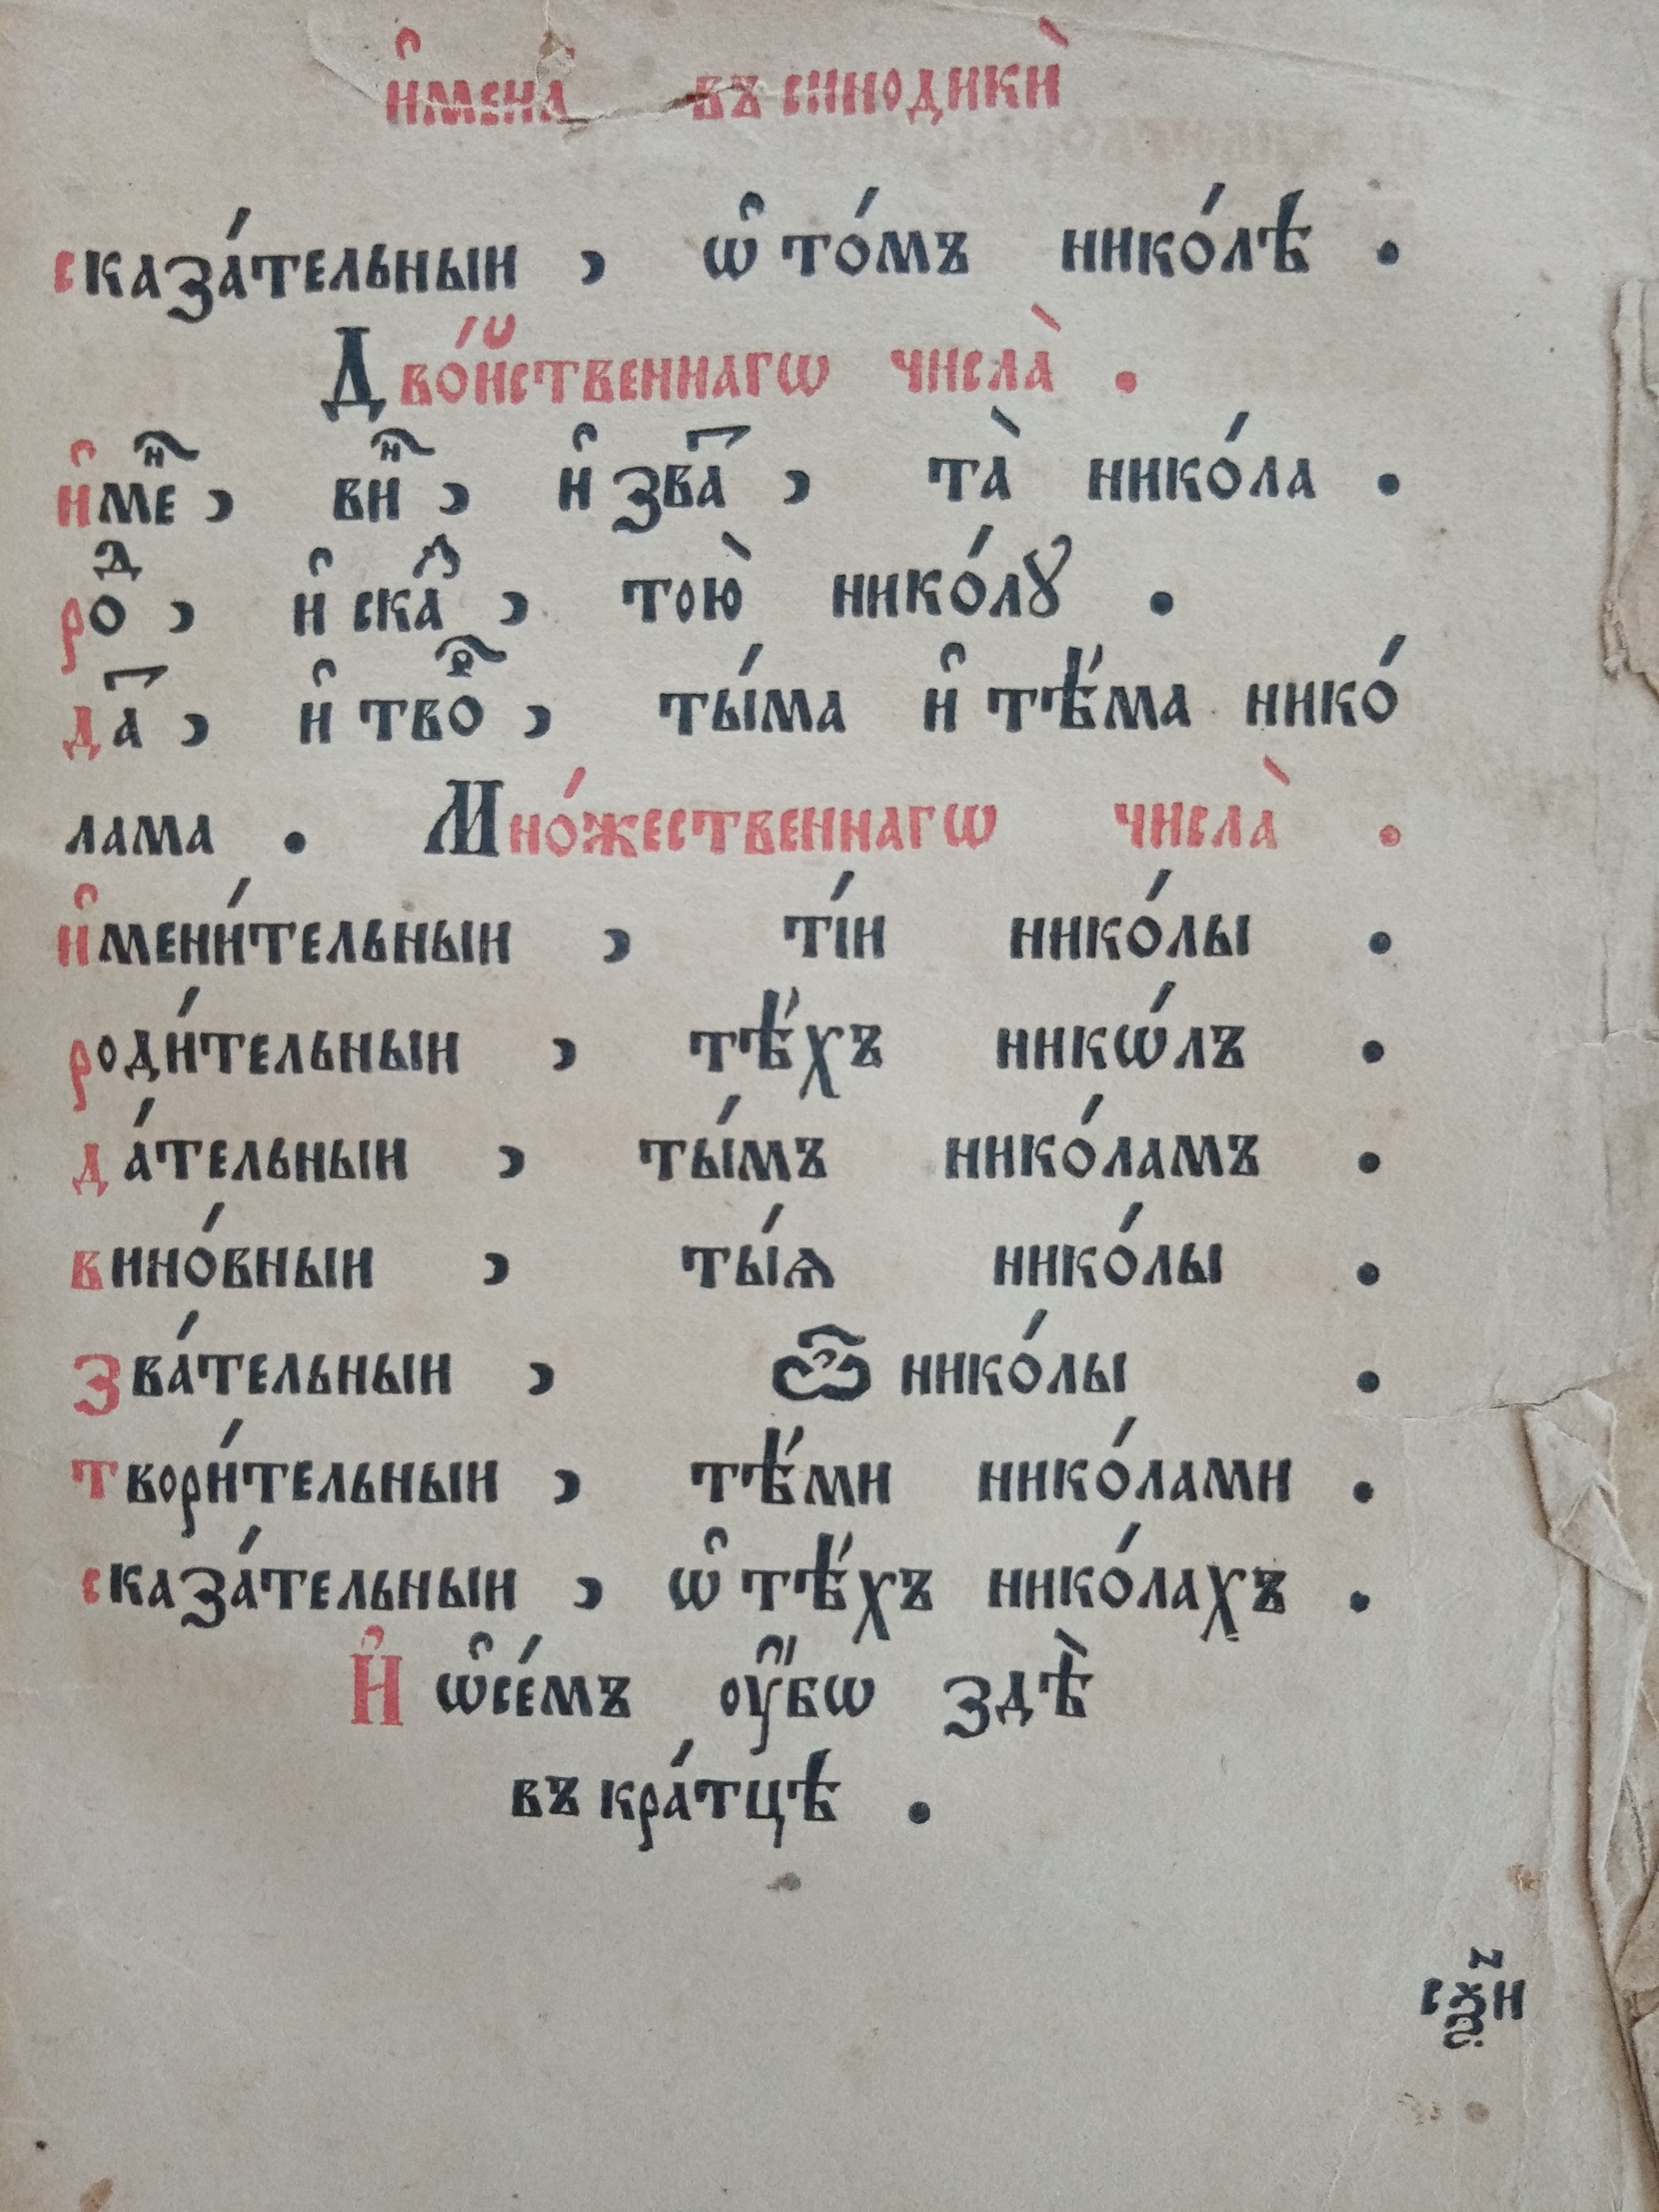 и҆мена̀ въ синодикѝ
сказа́тельныи , ѡ҆ то́мъ нико́лѣ .
Дво́йственнагѡ числа̀ .
и҆мен҇ , вин҇ , и҆ зва̄ , та̀ нико́ла .
роⷣ , и҆ скаⷥ , тою̀ нико́лꙋ .
да̄ , и҆ твоⷬ҇ , ты́ма и҆ тѣ́ма нико́
лама . Мно́жественнагѡ числа̀ .
и҆мени́тельныи , ті́и нико́лы .
роди́тельныи , тѣ́хъ никѡ́лъ .
да́тельныи , ты́мъ нико́ламъ .
вино́вныи , ты́ѧ нико́лы .
зва́тельныи , ѽ нико́лы .
твори́тельныи , тѣ́ми нико́лами .
сказа́тельныи , ѡ҆ тѣ́хъ нико́лахъ .
И҆ ѡ҆се́мъ оу҆́бѡ здѣ̀
въ кра́тцѣ .